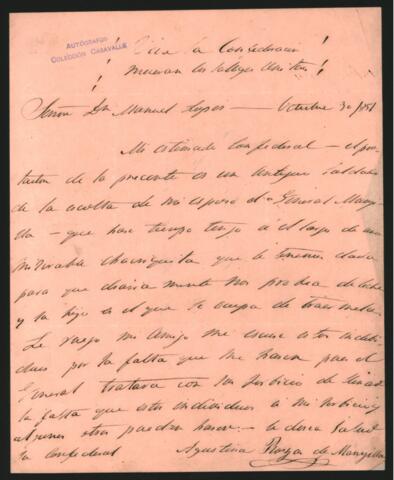 AUTÓGRAFO
COLECCIÓN CASAVALLE
¡ Viva la Confederacion !
¡ mueran los Salbages Unitarios !
Señor Dn Manuel Lopes — Octubre 30/851
Mi estimado Confederal — el por-
tador de la precente es un antiguo soldado
de la escolta de mi esposo el General Mansi-
lla — que hase tiempo tengo á el cargo de una
miserable chacriquita que le tenemos dada
para que diaria mente nos provea de leche
y la hijo es el que se ocupa de traermela
Le ruego mi amigo me escuse estos indibi
duos por la falta que me hasen pues el
General tratara con los serbicio de llenar
la falta que estos individuos á mi serbicio y
algunos otros puedan haser — le desea salud
la confederal Agustina Rozas de Mansilla